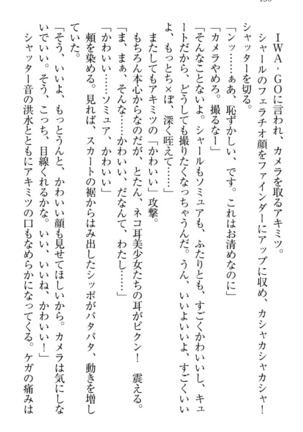 IWA・GOに言われ、カメラを取るアキミツ。
シャールのフェラチオ顔をファインダーにアップに収め、カシャカシャカシャ!
シャッターを切る。
「ンッ……あ、恥ずかしい、です。これはお清めなのに」
「カメラやめろ。撮るなー」
「そんなことないよ。シャールもソミュアも、ふたりとも、すごくかわいいし、キュ
ートだから、どうしても撮りたくなっちゃうんだ。うん、いいよいいよ、すごくいい
よ、もっとち×ぽ、深く咥えて……」
またしてもアキミツの「かわいい」攻撃。
もちろん本心からなのだが、とたん、ネコ耳美少女たちの耳がピクン! 震える。
「ま、まぁ、そんな……かわいい、だなんて、わたし……」
「かわいい……ソミュア、かわいい」
頬を染める。見れば、スカートの裾からはみ出したシッポがパタパタ、動きを増し
ていた。
「そう、いいよ、もっとうんと、かわいい顔も見せてほしいから。カメラは気にしな
いでいい。そう、こっち、目線くれるかな。いい、いいね、かわいい!」
シャッター音の洪水とともにアキミツの口もなめらかになってくる。ケガの痛みは